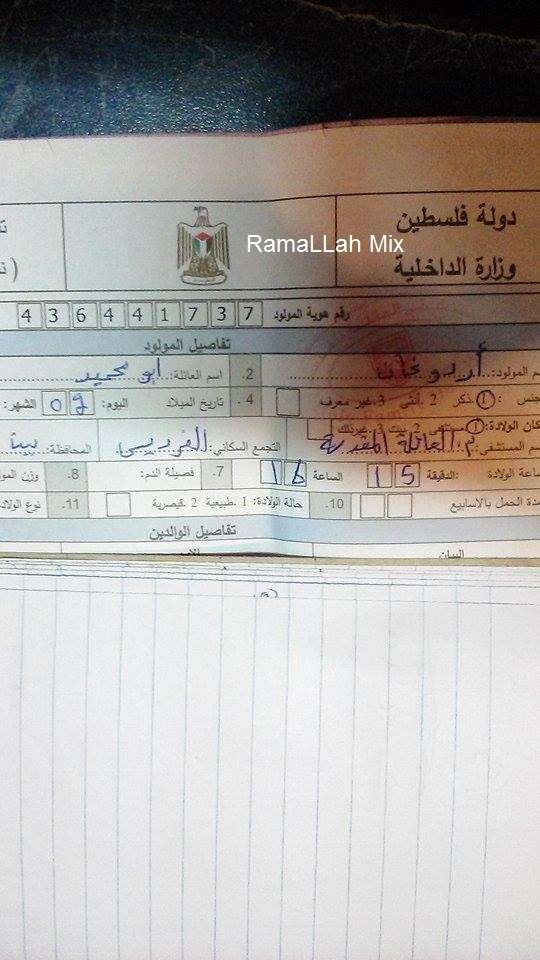 دولة فلسطين
RamaLLah Mix
وزارة الداخلية
رقم هوية المولود 4 3 6 4 4 1 7 3 7
تفاصيل المولود
م المولود: أردوغان 2. اسم العائلة: ابو حميد
جنس: 1 ذكر 2. أنثى 3. غير معرف 4. تاريخ الميلاد اليوم: 0 9 الشهر:
كان الولادة: 1 مستشفى 2. بيت 3. غير ذلك
م المستشفى: م. العائلة المقدسة التجمع السكاني: المحافظة: بيت
ساعة الولادة :الدقيقة 15 الساعة 16 7. فصيلة الدم: 8. وزن المو
دة الحمل بالاسابيع 10. حالة الولادة: 1. طبيعية 2. قيصرية 11. نوع الولاد
تفاصيل الوالدين
البيان